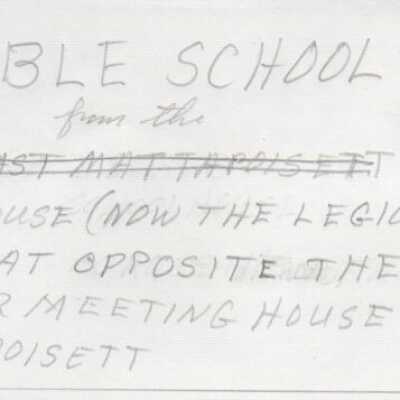 BLE SCHOOL
from the
ST MATTAPOISETT
OUSE (NOW THE LEGIO
AT OPPOSITE THE
R MEETING HOUSE
POISETT